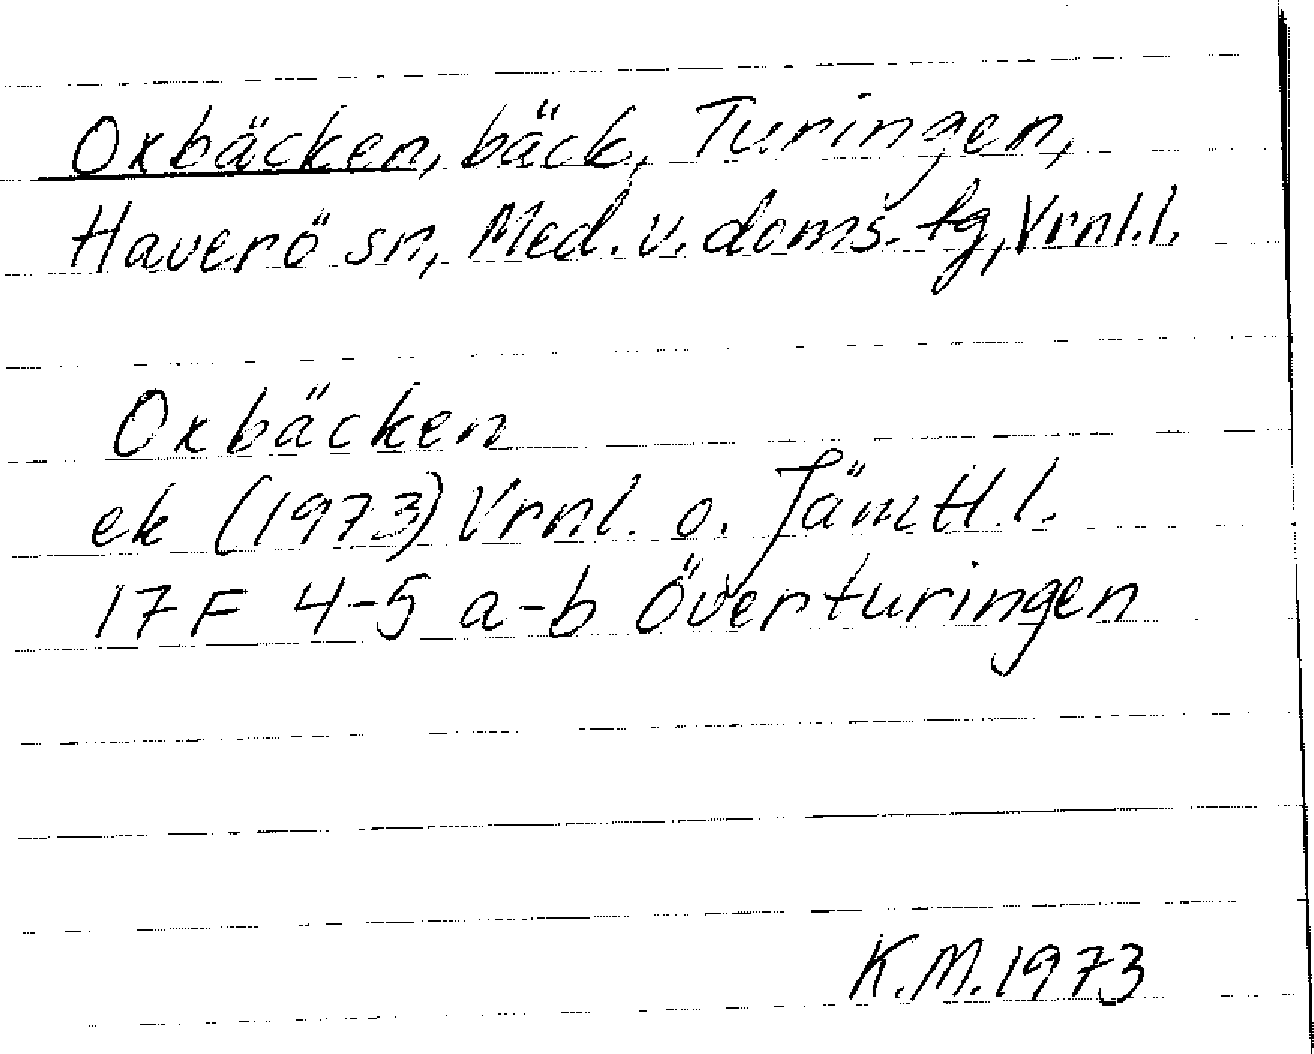 Oxbäcken, bäck, Turingen,
Haverö sn, Med. v. doms. tg, Vrnl.l.
Oxbäcken
ek (1973) Vrnl. o. Jämtl.l.
17 F 4-5 a-b Överturingen
K.M.1973